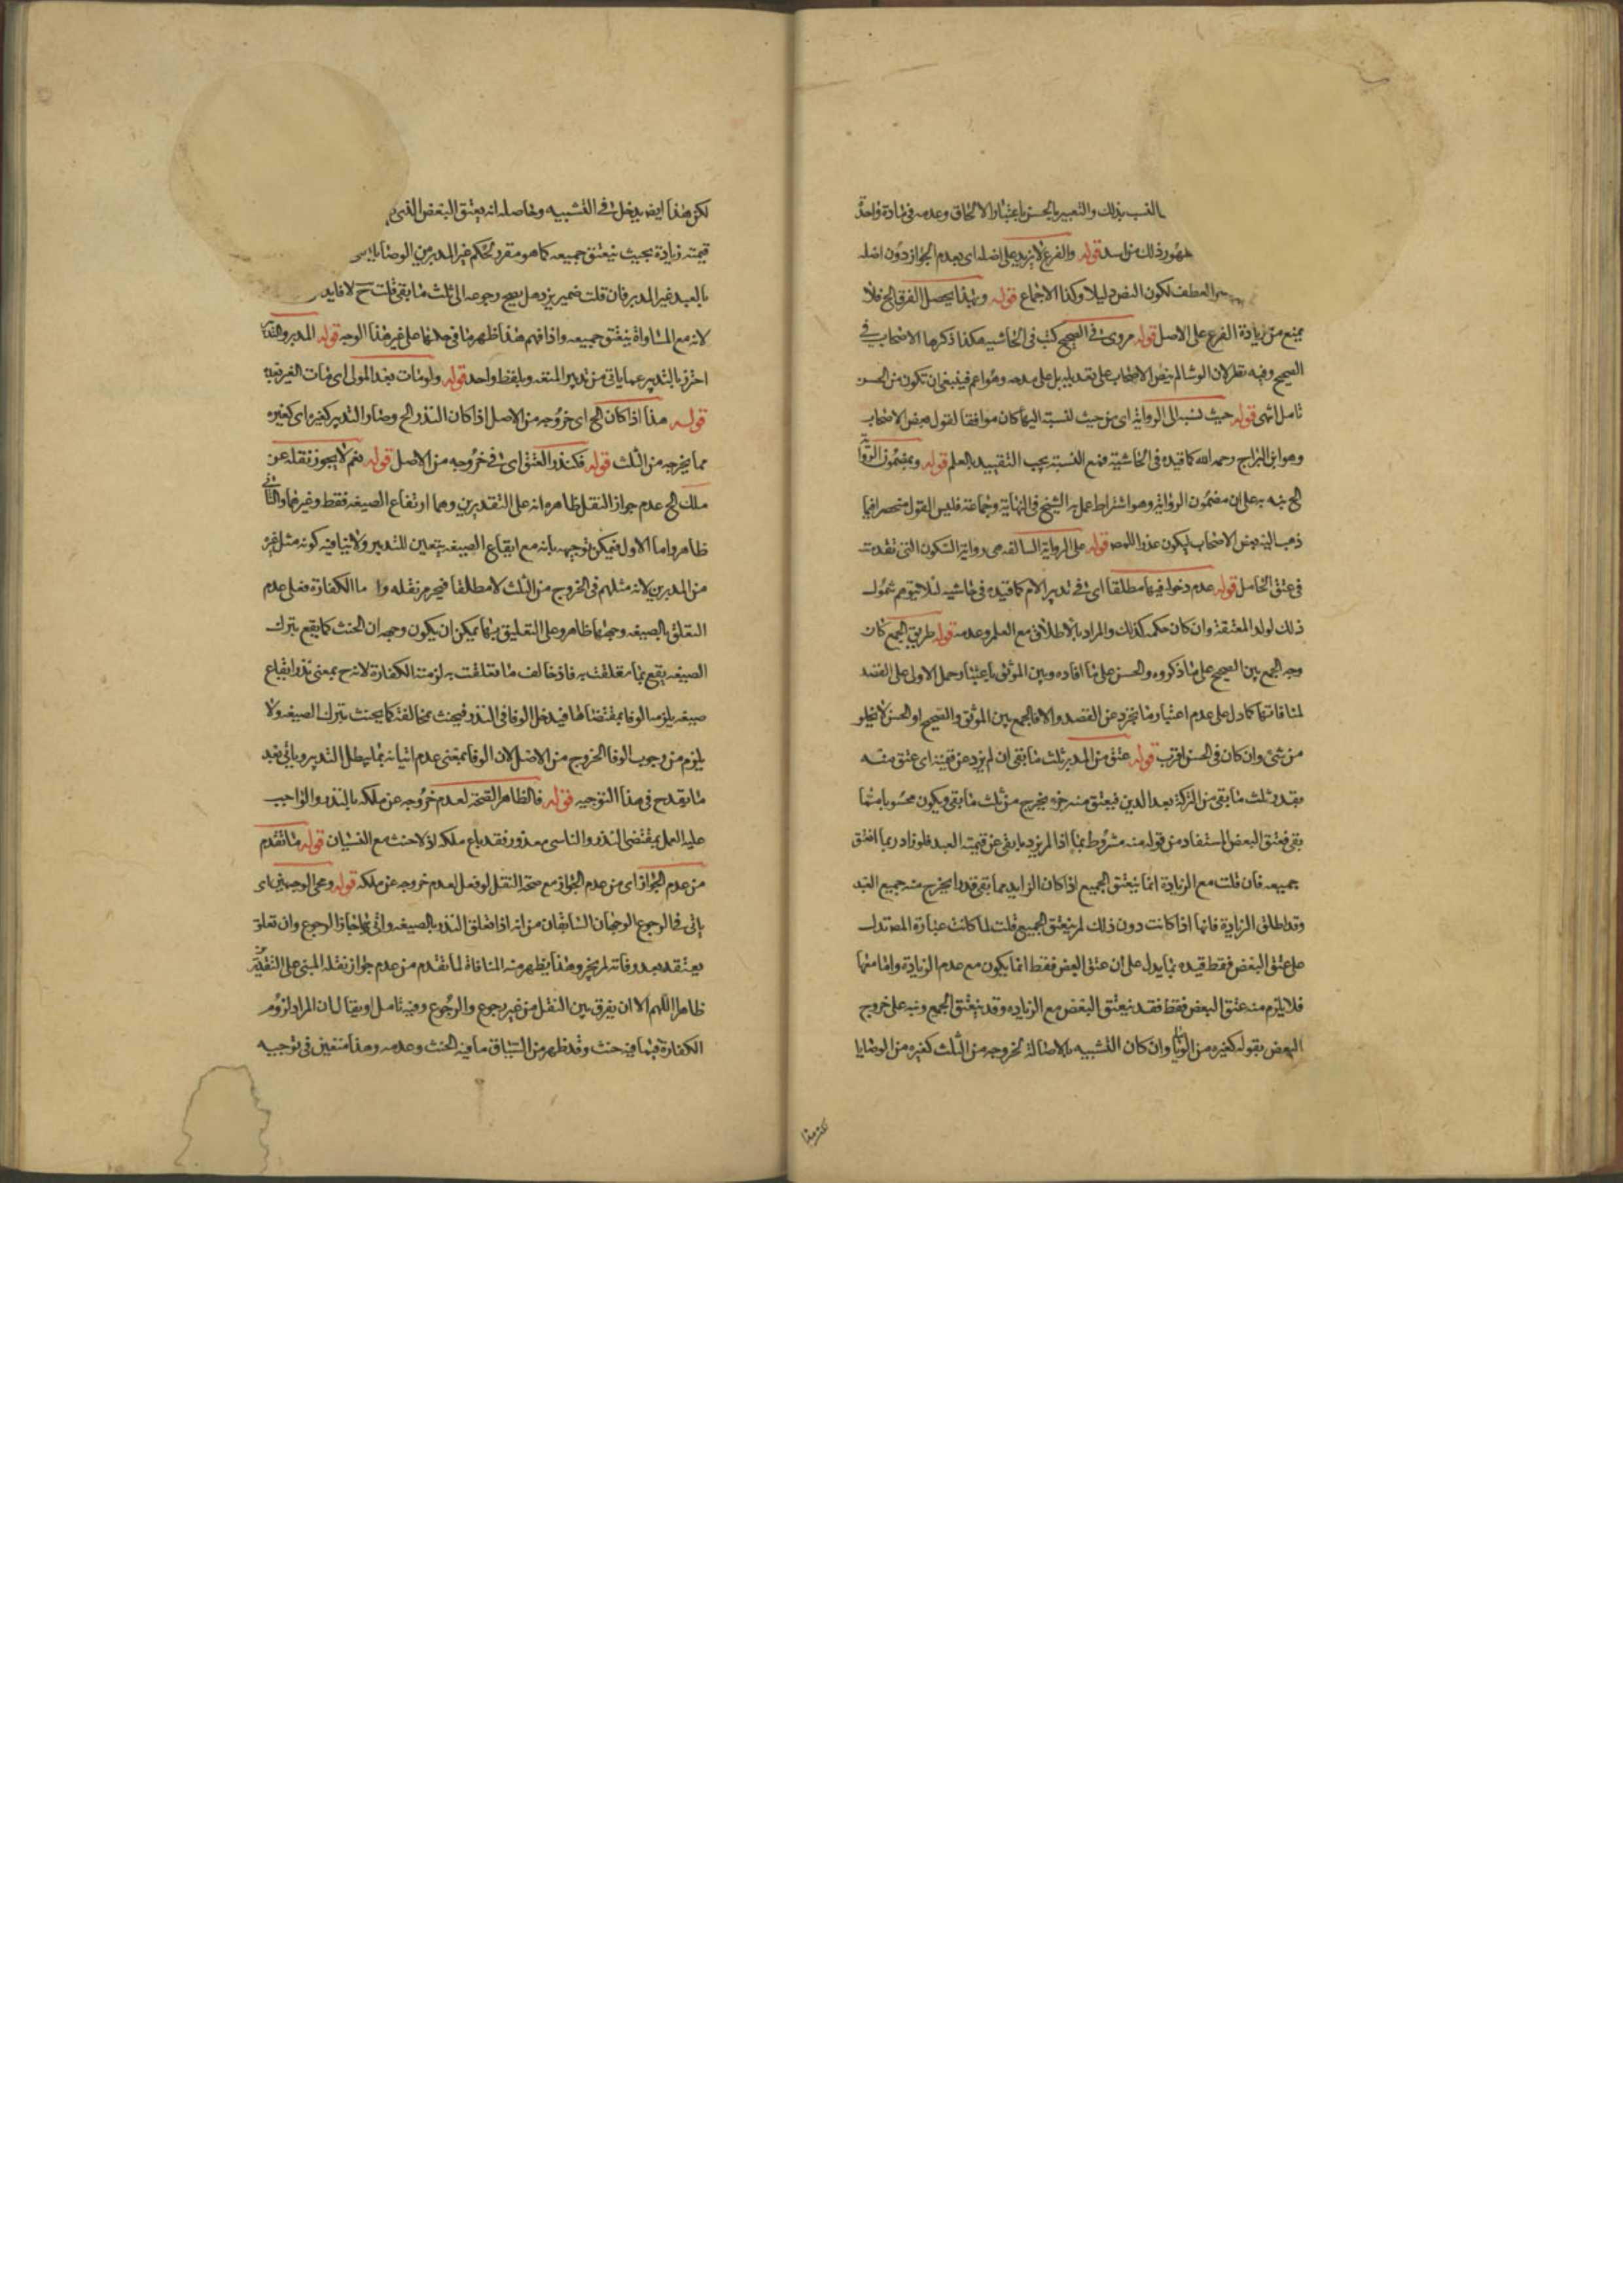 النسب بذلك والتعبير بالحسن باعتبار الالحاق وعدمه في مادة واحدة
ذلك من اسد قوله والفرع لا يزيد على اصله اى بعدم الجواز دون اصله
العطف لكون النص دليلا وكذا الاجماع قوله وبهذا يحصل الفرق الخ فلا
يمنع من زيادة الفرع على الاصل قوله مروى في الصحيح كتب في الحاشيه هكذا ذكرها الاصحاب في
الصحيح وفيه نظر لان الوشا لم ينص الاصحاب على تعديله بل على مدحه وهو اعم فينبغى ان تكون من الحسن
تامل انتهى قوله حيث نسبه الى الرواية اى من حيث نسبته اليها كان موافقا لقول بعض الاصحاب
وهو ابن البراج رحمه الله كما قيده في الحاشية فمع النسبة يجب التقييد بالعلم قوله وبمضمون الرواية
الخ نبه به على ان مضمون الرواية وهو اشتراط عمل به الشيخ في النهاية وجماعة فليس القول منحصرا فيما
ذهب اليه بعض الاصحاب ليكون عذرا للمص قوله على الرواية السالفه هى رواية السكونى التى تقدمت
في عتق الحامل قوله عدم دخوله فيهما مطلقا اى في تدبير الام كما قيده في حاشيه لئلا يتوهم شمول
ذلك لولد المعتقة وان كان حكمه كذلك والمراد بالاطلاق مع العلم وعدمه قوله طريق الجمع كان
وجه الجمع بين الصحيح على ما ذكروه والحسن على ما افاده وبين الموثق باعتبار حمل الاول على القصد
لمنافاتها كما دل على عدم اعتبار ما تجرد عن القصد والا فالجمع بين الموثق والصحيح او الحسن لا يخلو
من شئ وان كان في الحسن اقرب قوله عتق من المدبر ثلث ما بقى ان لم يزد عن قيمته اى عتق منه
بقدر ثلث ما بقى من التركة بعد الدين فيعتق منه جزء يخرج من ثلث ما بقى ويكون محسوبا مما
بقى فعتق البعض المستفاد من قوله منه مشروط بما اذا لم يزد ما بقى عن قيمة العبد فلو زاد ربما انعتق
جميعه فان قلت مع الزيادة انما ينعتق الجميع اذا كان الزايد مما بقى قدرا يخرج منه جميع العبد
وقد اطلق الزيادة فانها اذا كانت دون ذلك لم ينعتق الجميع قلت لما كانت عبارة المص تدل
على عتق البعض فقط قيده بما يدل على ان عتق البعض فقط انما يكون مع عدم الزيادة واما معها
فلا يلزم منه عتق البعض فقط فقد ينعتق البعض مع الزيادة وقد ينعتق الجميع ونبه على خروج
البعض بقوله كغيره من الوصايا وان كان التشبيه بالاصالة لخروجه من الثلث كغيره من الوصايا
لكن هذا
لكن هذا ايضا يدخل في التشبيه وحاصله انه يعتق البعض الذى
قيمته زيادة بحيث ينعتق جميعه كما هو مقرر لحكم غير المدبر من الوصايا
بالعبد غير المدبر فان قلت ضمير يزد هل يصح رجوعه الى ثلث ما بقى قلت ح لا فايد
لانه مع المساواة ينعتق جميعه واذا فهم هذا ظهر ما في حملها على غير هذا الوجه قوله المدبر
احترز بالتدبير عما ياتى من تدبير المتعدد بلفظ واحد قوله ولو مات بعد المولى اى مات
قوله هذا اذا كان الخ اى خروجه من الاصل اذا كان النذر الخ وصار التدبير كغيره اى كغيره
مما يخرجه من الثلث قوله فكنذر العتق اى في خروجه من الاصل قوله نعم لا يجوز نقله عن
ملك الخ عدم جواز النقل ظاهره انه على التقديرين وهما ايقاع الصيغه فقط وغيرها والثانى
ظاهر واما الاول فيمكن توجيهه بانه مع ايقاع الصيغه يتعين للتدبير ولا ينافيه كونه مثل غيره
من المدبرين لانه مثلهم في الخروج من الثلث لا مطلقا فيحرم نقله واما الكفارة فعلى عدم
التعلق بالصيغه وجهها ظاهر وعلى التعليق بها يمكن ان يكون وجهه ان الحنث كما يقع بترك
الصيغه يقع بما تعلقت به فاذا خالف ما تعلقت به لزمته الكفارة لانه ح بمعنى نذر ايقاع
صيغه يلزمه الوفا بمقتضاها فيدخل الوفا في النذر فيحنث بمخالفته كما يحنث بترك الصيغه ولا
يلزم من وجوب الوفا الخروج من الاصل لان الوفا بمعنى عدم اتيانه بما يبطل التدبير وياتى بعد
ما يقدح في هذا التوجيه قوله فالظاهر الصحة لعدم خروجه عن ملكه بالنذر والواجب
عليه العمل بمقتضى النذر والناسى معذور فقد باع ملكه اذ لا حنث مع النسيان قوله ما تقدم
من عدم الجواز اى من عدم الجواز مع صحة النقل لو فعل لعدم خروجه عن ملكه قوله وعلى الوجهين اى
ياتى في الرجوع الوجهان السابقان من انه اذا تعلق النذر بالصيغه واتى بها جاز الرجوع وان تعلق
بعتقه بعد وفاته لم يجز وهذا يظهر منه المنافاة لما تقدم من عدم جواز نقله المبنى على التقديرين
ظاهرا اللهم الا ان يفرق بين النقل من غير رجوع والرجوع وفيه تامل او يقال ان المراد لزوم
الكفارة فيما فيه حنث وقد ظهر من السياق ما فيه الحنث وعدمه وهذا متعين في توجيه